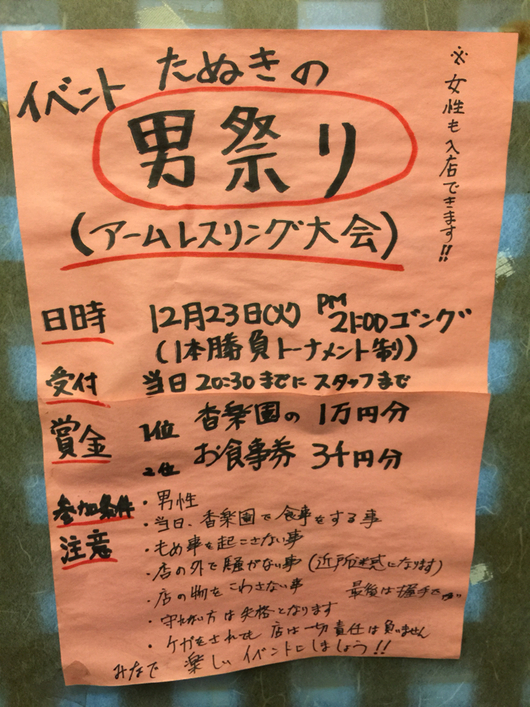 イベント たぬきの
男祭り
(アームレスリング大会)
※女性も入店できます!!
日時 12月23日(火) PM 21:00 ゴング
(1本勝負トーナメント制)
受付 当日 20:30までにスタッフまで
賞金 1位 香楽園の 1万円分
2位 お食事券 3千円分
参加条件 ・男性
・当日、香楽園で食事をする事
注意 ・もめ事を起こさない事
・店の外で騒がない事 (近所迷惑になります)
・店の物をこわさない事 最後は握手で
・守れない方は失格となります
・ケガをされても 店は一切責任は負いません
みなで 楽しいイベントにしましょう!!